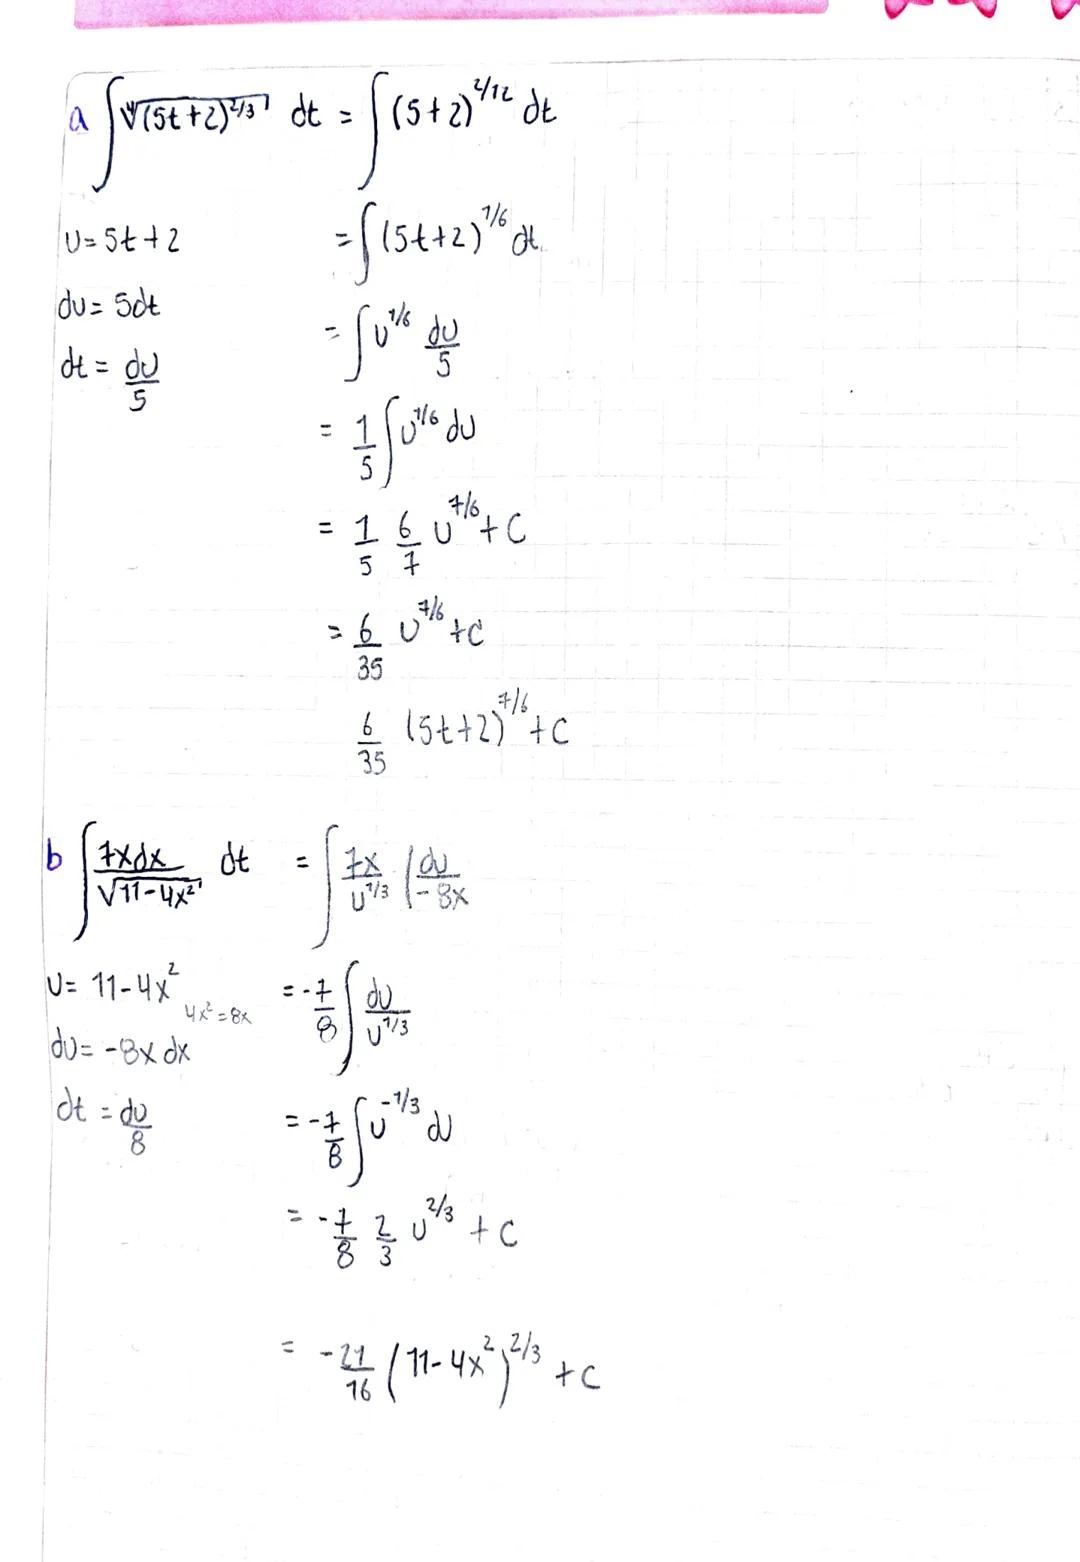 a ∫ ∜(5t+2)^2/3 dt = ∫ (5+2)^2/12 dt
u = 5t+2
= ∫ (5t+2)^1/6 dt
du = 5dt
= ∫ u^1/6 du/5
dt = du/5
= 1/5 ∫ u^1/6 du
= 1/5 6/7 u^7/6 + C
= 6/35 u^7/6 + C
6/35 (5t+2)^7/6 + C
b ∫ 7xdx/√11-4x² dt = ∫ 7x/u^1/3 (du/-8x
u = 11-4x²
4x² = 8x
= -7/8 ∫ du/u^1/3
du = -8x dx
dt = du/8
= -7/8 ∫ u^-1/3 du
= -7/8 2/3 u^2/3 + C
= -21/16 (11-4x²)^2/3 + C